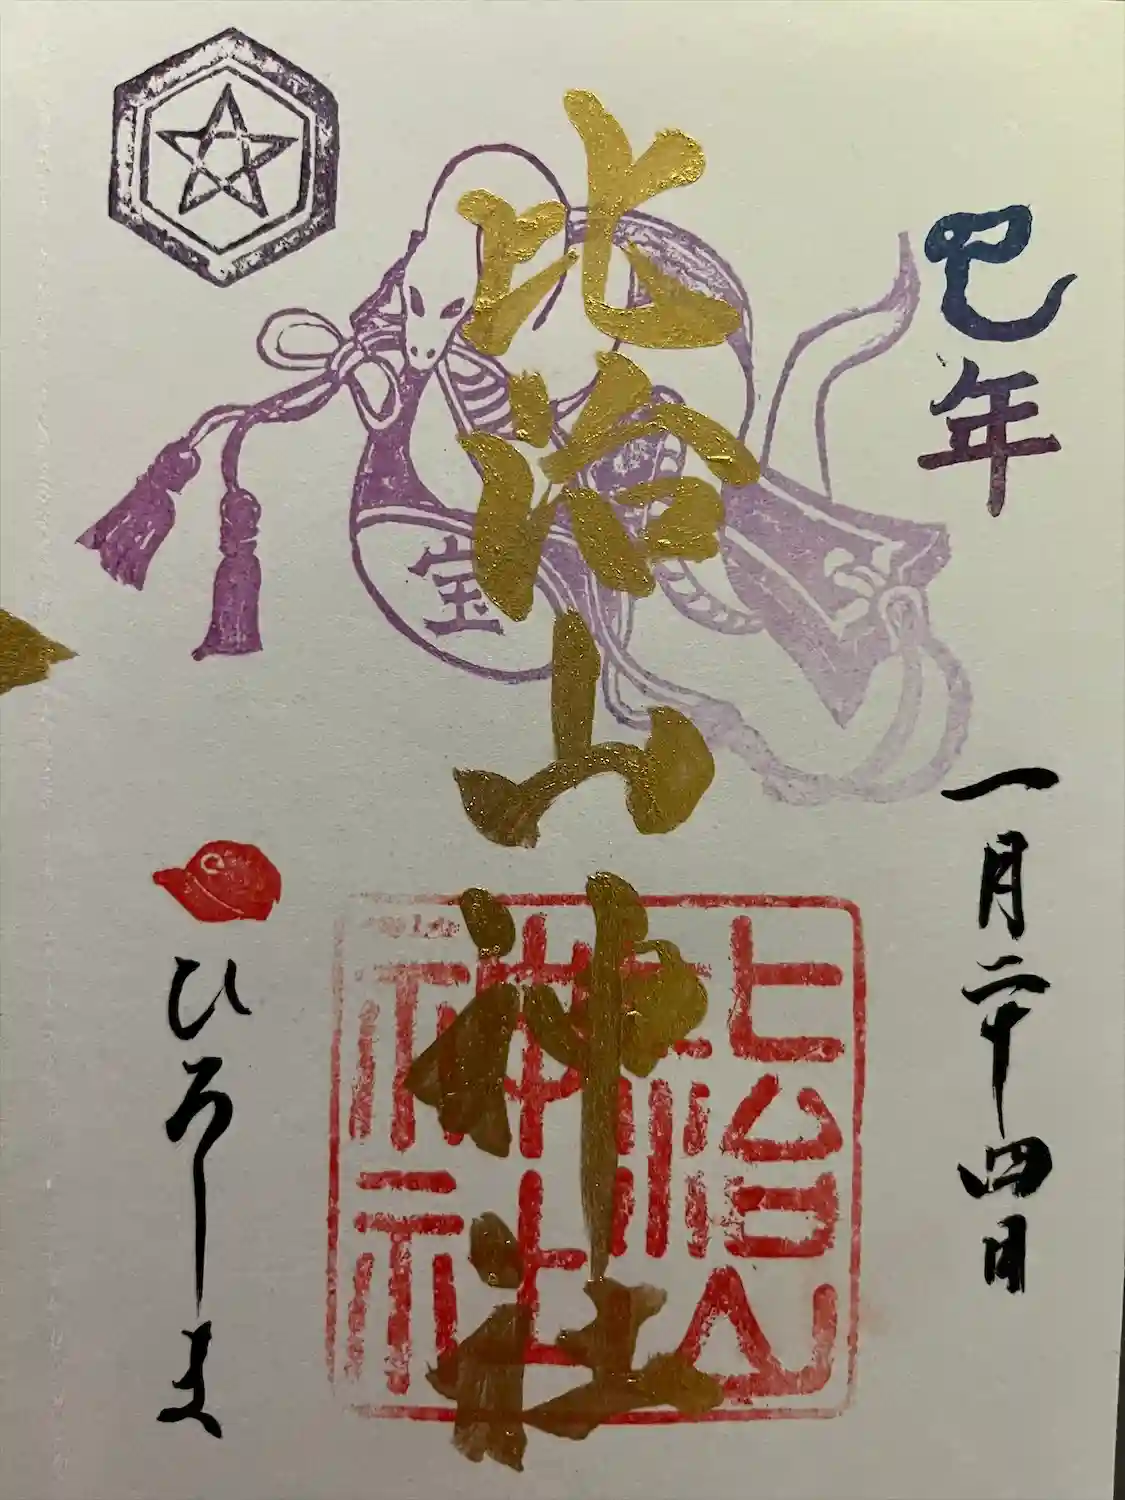 巳年
一月二十四日
比治山神社
宝
比治山神社
C
ひろしま